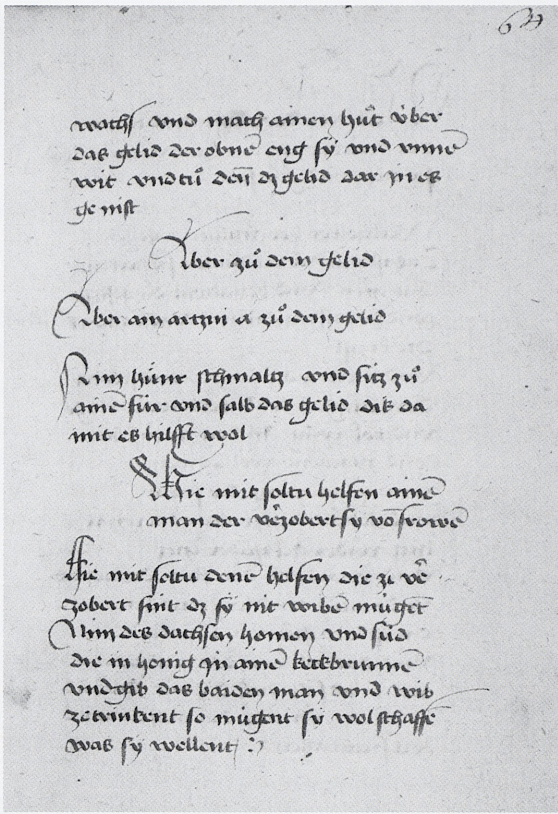 64
wachs vnd mach ainen hůt v̇ber
das gelid der obnē eng sÿ vnd vnnē
wit vnd tů den̄ dz gelid dar in es
ge nist
Aber zů dem gelid
Aber ain artzni a zů dem gelid
Nim hünr schmaltz vnd sitz zů
ainē für vnd salb das gelid dik da
mit es hilfft wol
Hie mit soltu helfen ainē
man der v̄ezobert sÿ vō frowē
Hie mit soltu denē helfen die ze v̄e
zobert sint dz sÿ nit wibē mügēt
Nim des dachsen homen vnd süd
die in honig in ainē keckbrunnē
vnd gib das baiden man vnd wib
ze trinkent so mügent sÿ wol schaffē
was sÿ wellent